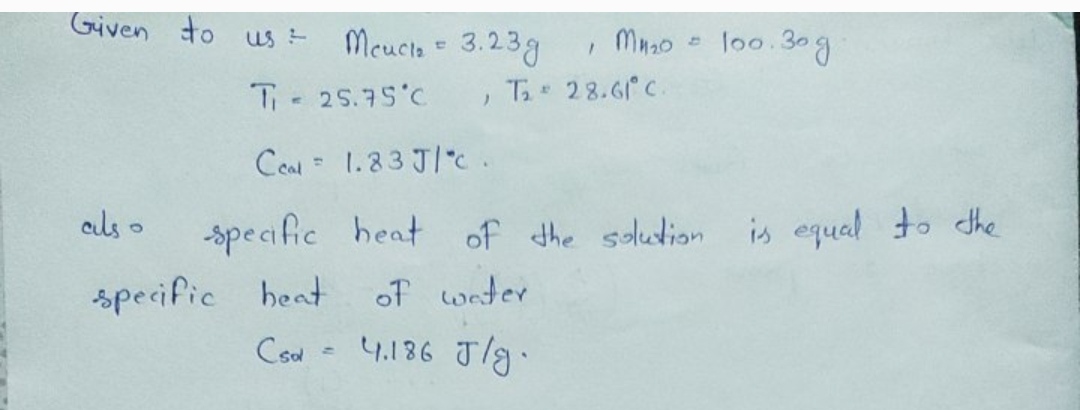 Given to us :- Mcucl2 = 3.23g , MH20 = 100.30g
T1 = 25.75°C , T2 = 28.61°C.
Ccal = 1.83 J/°C.
also specific heat of the solution is equal to the
specific heat of water
Csol = 4.186 J/g.